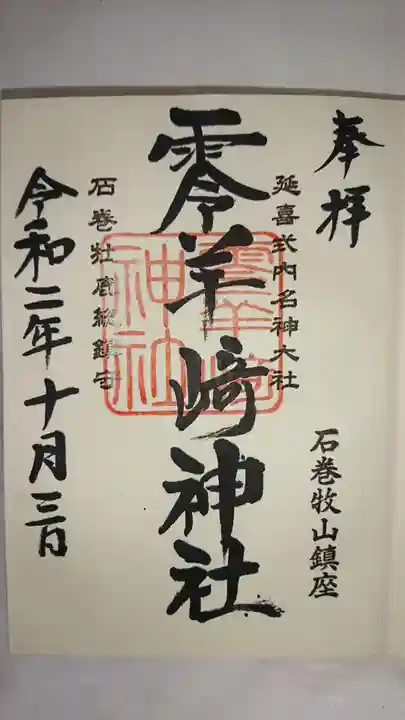 奉拝
石巻牧山鎮座
延喜式内名神大社
零羊﨑神社
石巻牡鹿総鎮守
令和二年十月三日
零羊崎
神社